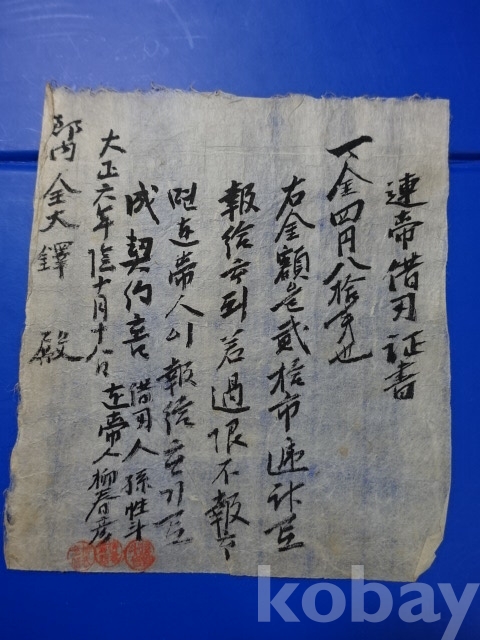 連帶借用証書
一金四円八拾戔也
右金額은貳拾市邊計로
報給하되若過限不報하
면連帶人이報給하기로
成契約홈 借用人 孫性斗
大正六年陰十月十八日 連帶人 柳春彦
金大鐸 殿
kobay